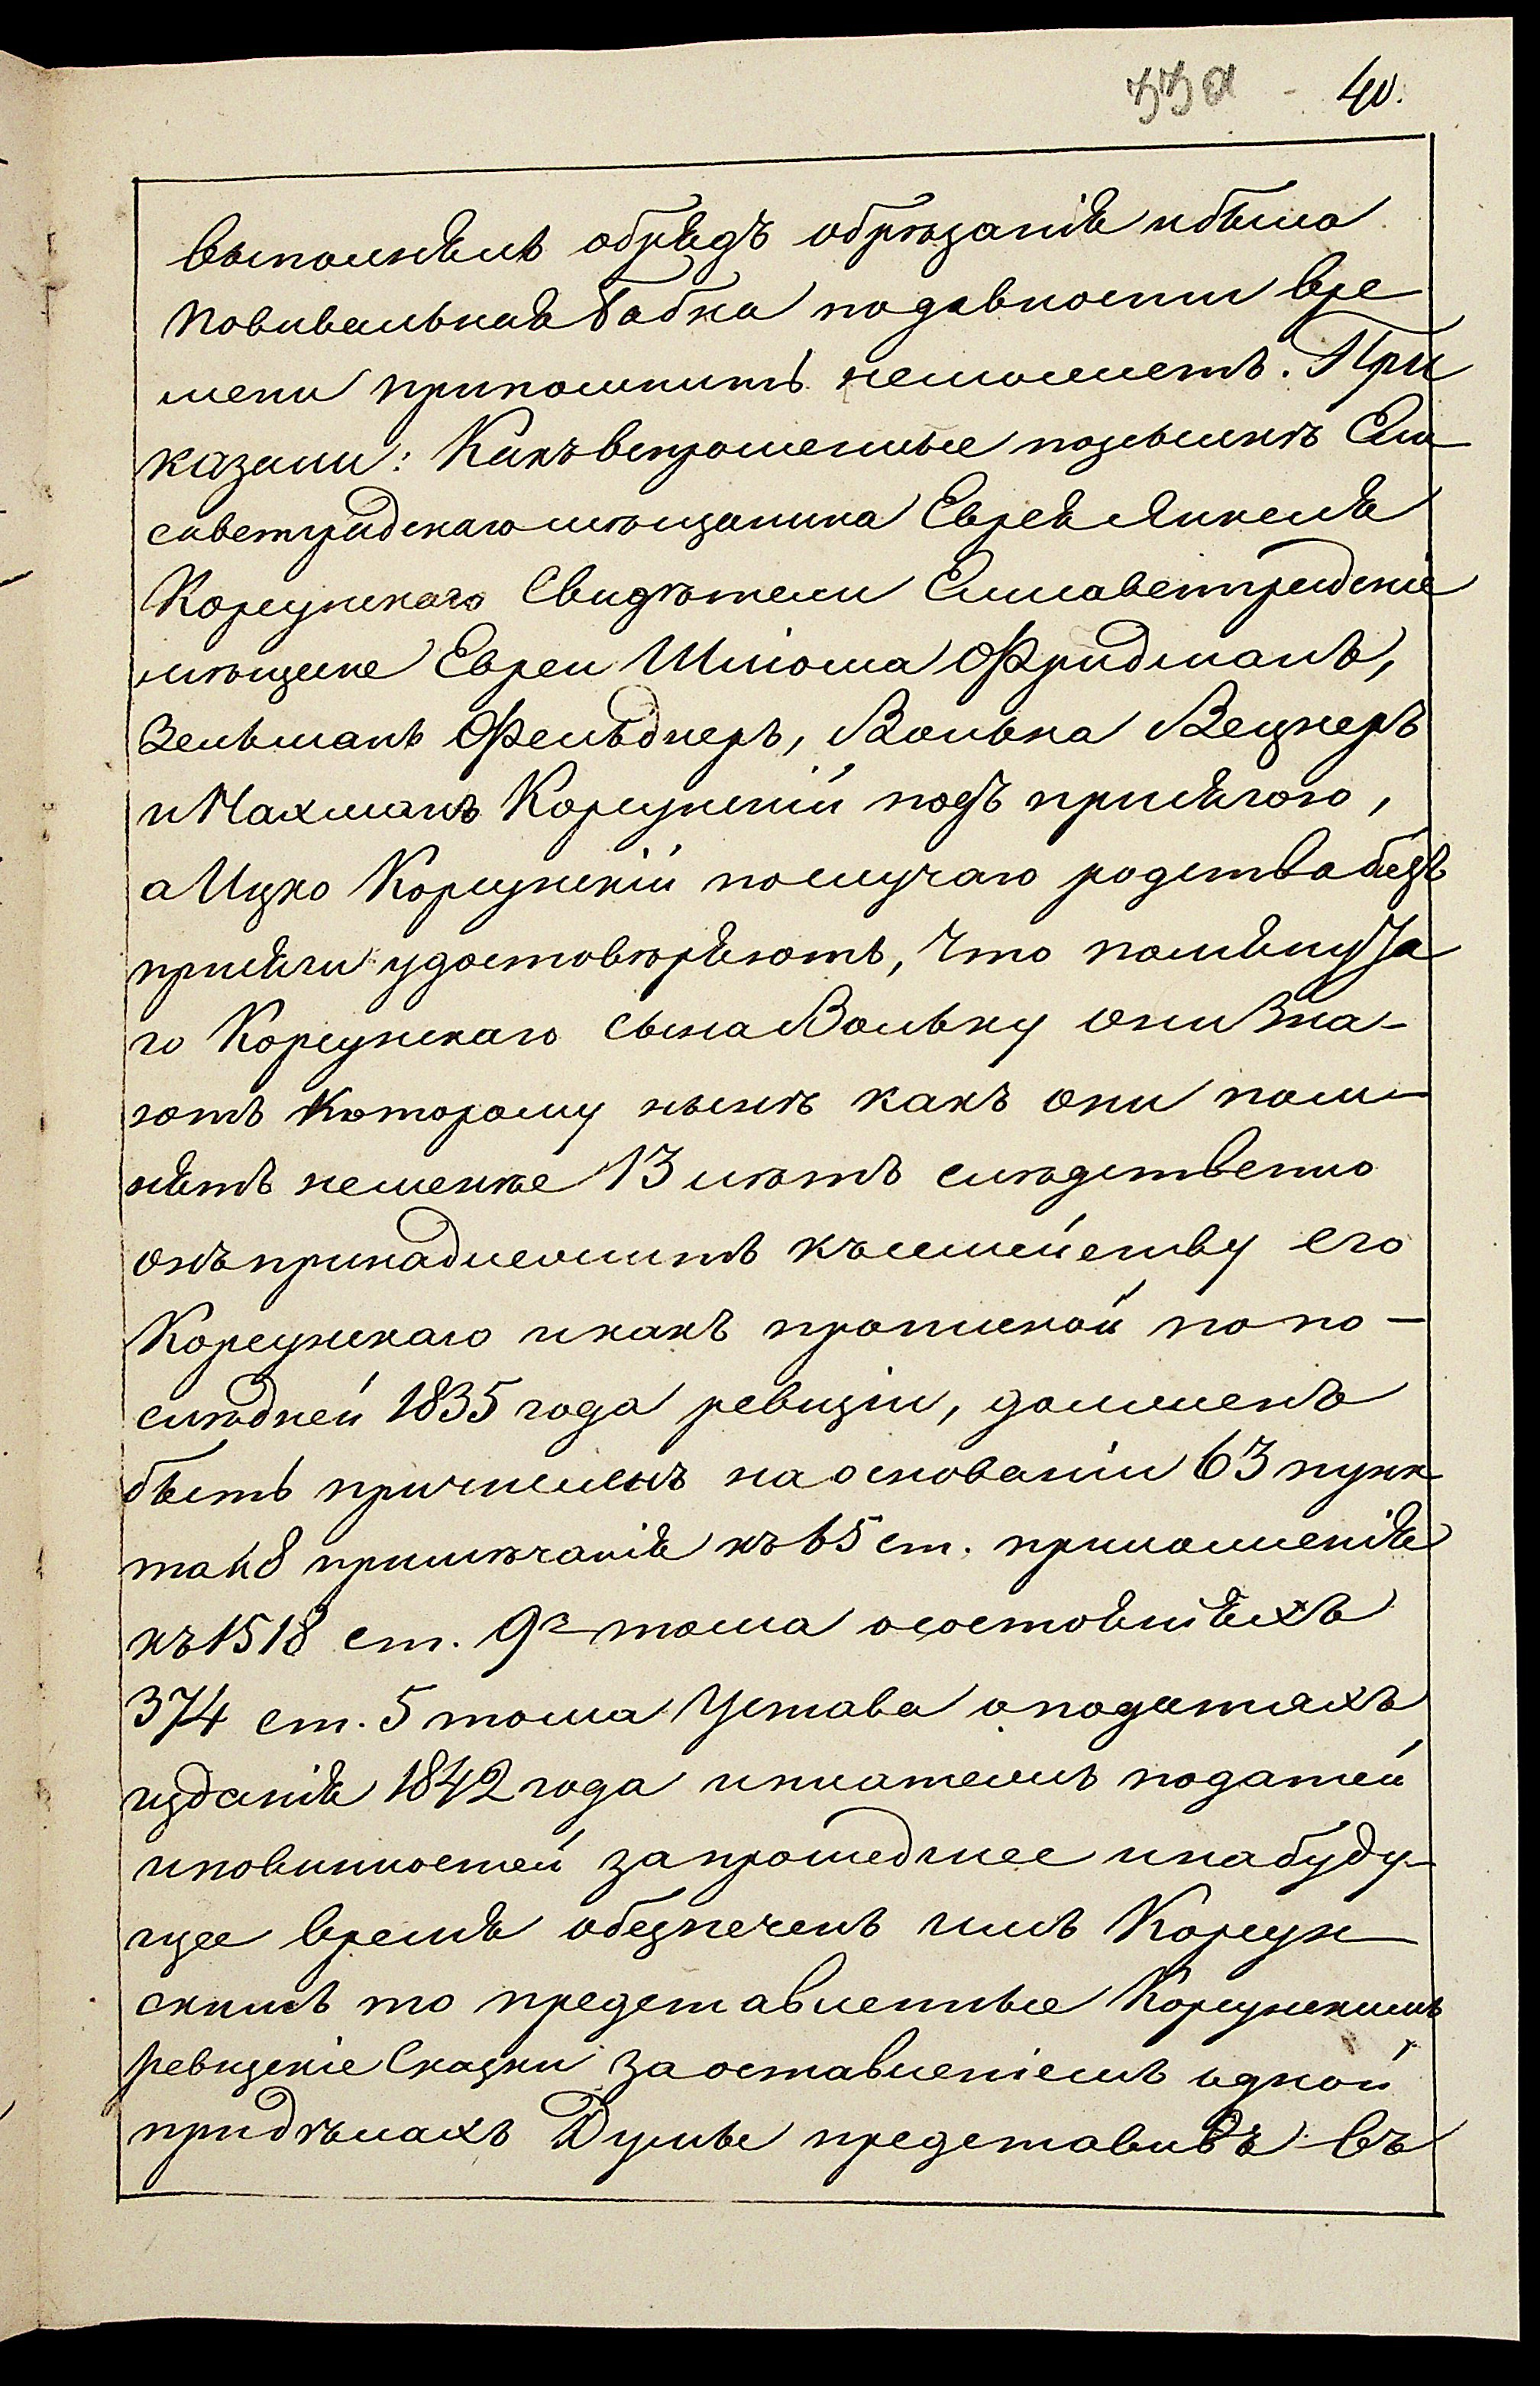 40.
выполнялъ обрядъ обрѣзанія и была
повивальная бабка по давности вре
мени припомнить неможетъ. При
казали: Какъ вспрошенные позъискъ Ели
саветградскаго мѣщанина Еврея Янкеля
Корсунскаго Свидѣтели Елисаветградскіе
мѣщане Евреи Шліома Фридманъ,
Зельманъ Фельднеръ, Волька Вецнеръ
и Нахманъ Корсунскій подъ присягою,
а Ицко Корсунскій по случаю родства безъ
присяги удостовѣряютъ, что помянута
го Корсунскаго сына Вольку они зна-
ютъ которому нынѣ какъ они пом-
нятъ неменѣе 13 лѣтъ слѣдственно
онъ принадлежитъ къ семейству его
Корсунскаго и какъ прописной по по-
слѣдней 1835 года ревизіи, долженъ
быть причисленъ на основаніи 63 пунк
та и 8 примѣчанія къ 65 ст. приложенія
къ 1518 ст. 9го тома о состояніяхъ
374 ст. 5 тома Устава о податяхъ
изданія 1842 года и платежъ податей
и повинностей за прошедшее и на буду-
щее время обезпеченъ имъ Корсун
скимъ то представленные Корсунскимъ
ревизскіе Сказки за оставленіемъ одной
при дѣлахъ Думы представивъ въ